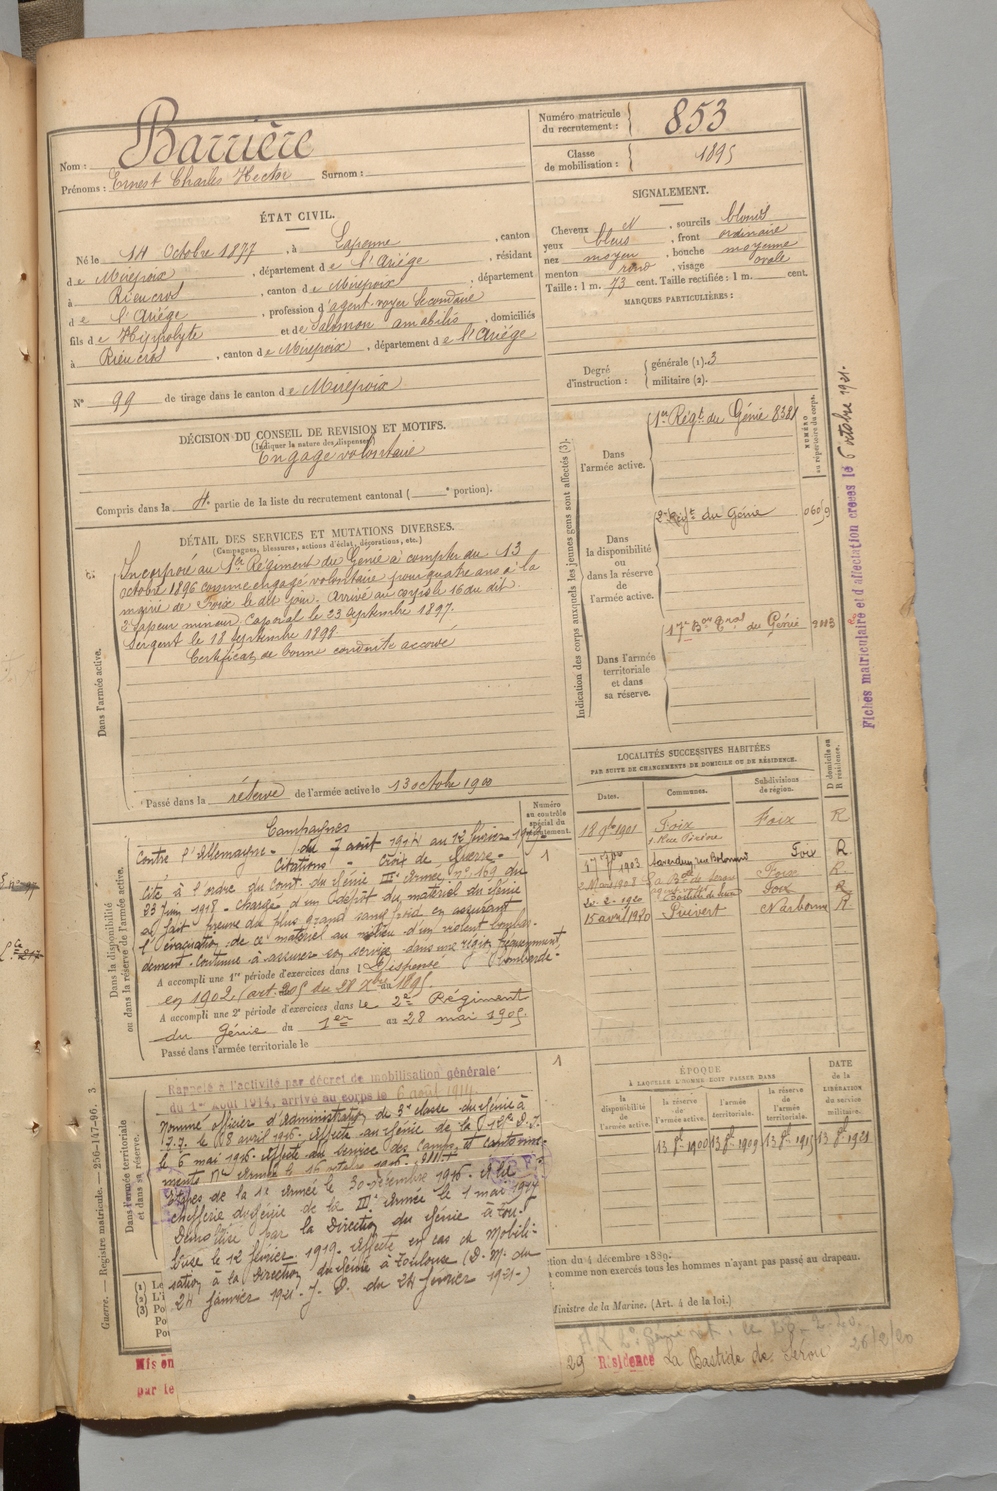 Nom : Barrière
Prénoms : Ernest Charles Hector Surnom :
Numéro matricule du recrutement : 853
Classe de mobilisation : 1895
ÉTAT CIVIL.
Né le 14 Octobre 1877, à Lapenne, canton
de Mirepoix, département de l'Ariège, résidant
à Rieucros, canton de Mirepoix, département
de l'Ariège, profession d'agent-voyer secondaire
fils de Hippolyte et de Salomon amabilis, domiciliés
à Rieucros, canton de Mirepoix, département de l'Ariège
N° 99 de tirage dans le canton de Mirepoix
SIGNALEMENT.
Cheveux N, sourcils blonds
yeux bleus, front ordinaire
nez moyen, bouche moyenne
menton rond, visage ovale
Taille : 1 m. 73 cent. Taille rectifiée : 1 m. cent.
MARQUES PARTICULIÈRES :
Degré d'instruction : générale (1). 3
militaire (2).
DÉCISION DU CONSEIL DE REVISION ET MOTIFS.
(Indiquer la nature des dispenses)
Engagé volontaire
Compris dans la 4e partie de la liste du recrutement cantonal ( e portion).
DÉTAIL DES SERVICES ET MUTATIONS DIVERSES.
(Campagnes, blessures, actions d'éclat, décorations, etc.)
Dans l'armée active.
Incorporé au 1er Régiment du Génie à compter du 13
octobre 1896 comme engagé volontaire pour quatre ans à la
mairie de Foix le dit jour. Arrivé au corps le 16 du dit
Sapeur mineur, Caporal le 23 Septembre 1897.
Sergent le 18 Septembre 1898
Certificat de bonne conduite accordé
Passé dans la réserve de l'armée active le 13 octobre 1900
Indication des corps auxquels les jeunes gens sont affectés (3).
NUMÉRO au répertoire du corps.
Dans l'armée active.
1er Régt du Génie 8381
Dans la disponibilité ou dans la réserve de l'armée active.
2e Régt du Génie
Dans l'armée territoriale et dans sa réserve.
17e Bon Tral du Génie
Fiches matriculaire et d'affectation créées le 6 octobre 1921.
Dans la disponibilité ou dans la réserve de l'armée active.
Numéro au contrôle spécial du recrutement.
1
Campagnes
Contre l'Allemagne - du 7 août 1914 au 12 février
Citations - Croix de Guerre -
Cité à l'ordre du Comt du Génie IIIe Armée, n° 169 du
23 Juin 1918 - Chargé d'un dépôt du matériel du Génie
a fait preuve du plus grand sang froid en assurant
l'évacuation de ce matériel au milieu d'un violent bombar-
dement. Continue à assurer son service dans une région fréquemment
bombardée
A accompli une 1re période d'exercices dans l Dispensé
en 1902 (art.
A accompli une 2e période d'exercices dans le 2e Régiment
du Génie du 1er au 28 mai 1905.
Passé dans l'armée territoriale le
LOCALITÉS SUCCESSIVES HABITÉES
PAR SUITE DE CHANGEMENTS DE DOMICILE OU DE RÉSIDENCE.
Dates. Communes. Subdivisions de région. D domicile ou R résidence.
18 9bre 1901 Foix Foix R
1903 Foix R
2 Mars 1908 Foix R
24-2-1920 Foix R
15 avril 1920 Puivert Narbonne R
Dans l'armée territoriale et dans sa réserve.
1
Rappelé à l'activité par décret de mobilisation générale
du 1er Août 1914, arrivé au corps le 6 août 1914
Nommé officier d'Administration de 3e classe du Génie à
T.T. le 8 avril 1916. Affecté au Génie de la
le 6 mai 1916. Affecté au service des Camps et cantonne-
ments Armée le 16 octobre 1916.
Etapes de la 1e Armée le 30 décembre 1916. A la
chefferie du Génie de la IIIe Armée le 1 mai 1917
Démobilisé par la Direction du Génie à Tou-
louse le 12 février 1919. Affecté en cas de Mobili-
sation à la Direction du Génie à Toulouse (D. M. du
24 Janvier 1921. J. O. du 24 Janvier 1921.)
ÉPOQUE
À LAQUELLE L'HOMME DOIT PASSER DANS
la disponibilité de l'armée active. la réserve de l'armée active. l'armée territoriale. la réserve de l'armée territoriale.
DATE de la LIBÉRATION du service militaire.
13 8bre 1900 13 8bre 1909 13 8bre 1915 13 8bre 1921
Guerre. — Registre matricule. — 256-147-96. 3
(1) Le
(2) L'i
(3) Po
Po
Pou
tion du 4 décembre 1889.
comme non exercés tous les hommes n'ayant pas passé au drapeau.
Ministre de la Marine. (Art. 4 de la loi.)
Mis en
par le
29 Résidence La Bastide de Sérou 26/2/20